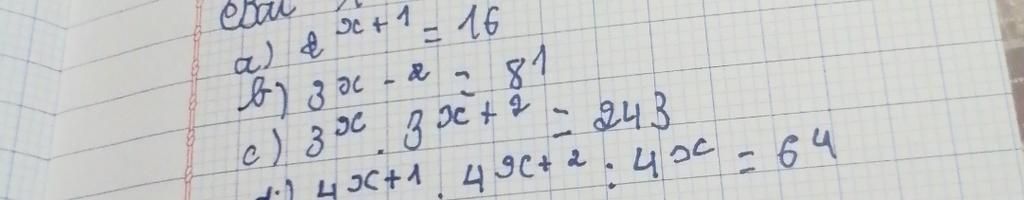 a) 2^{x+1} = 16
b) 3^{x-2} = 81
c) 3^x . 3^{x+2} = 243
d) 4^{x+1} . 4^{x+2} : 4^x = 64